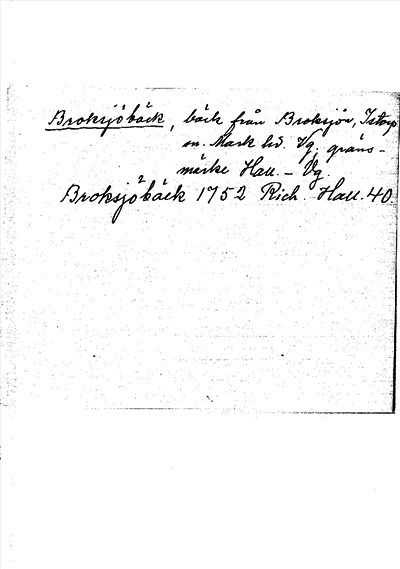 Broksjöbäck, bäck från Broksjön, Istorp
sn. Mark hd. Vg. gräns-
märke Hall. – Vg.
Broksjöbäck 1752 Rich. Hall. 40.